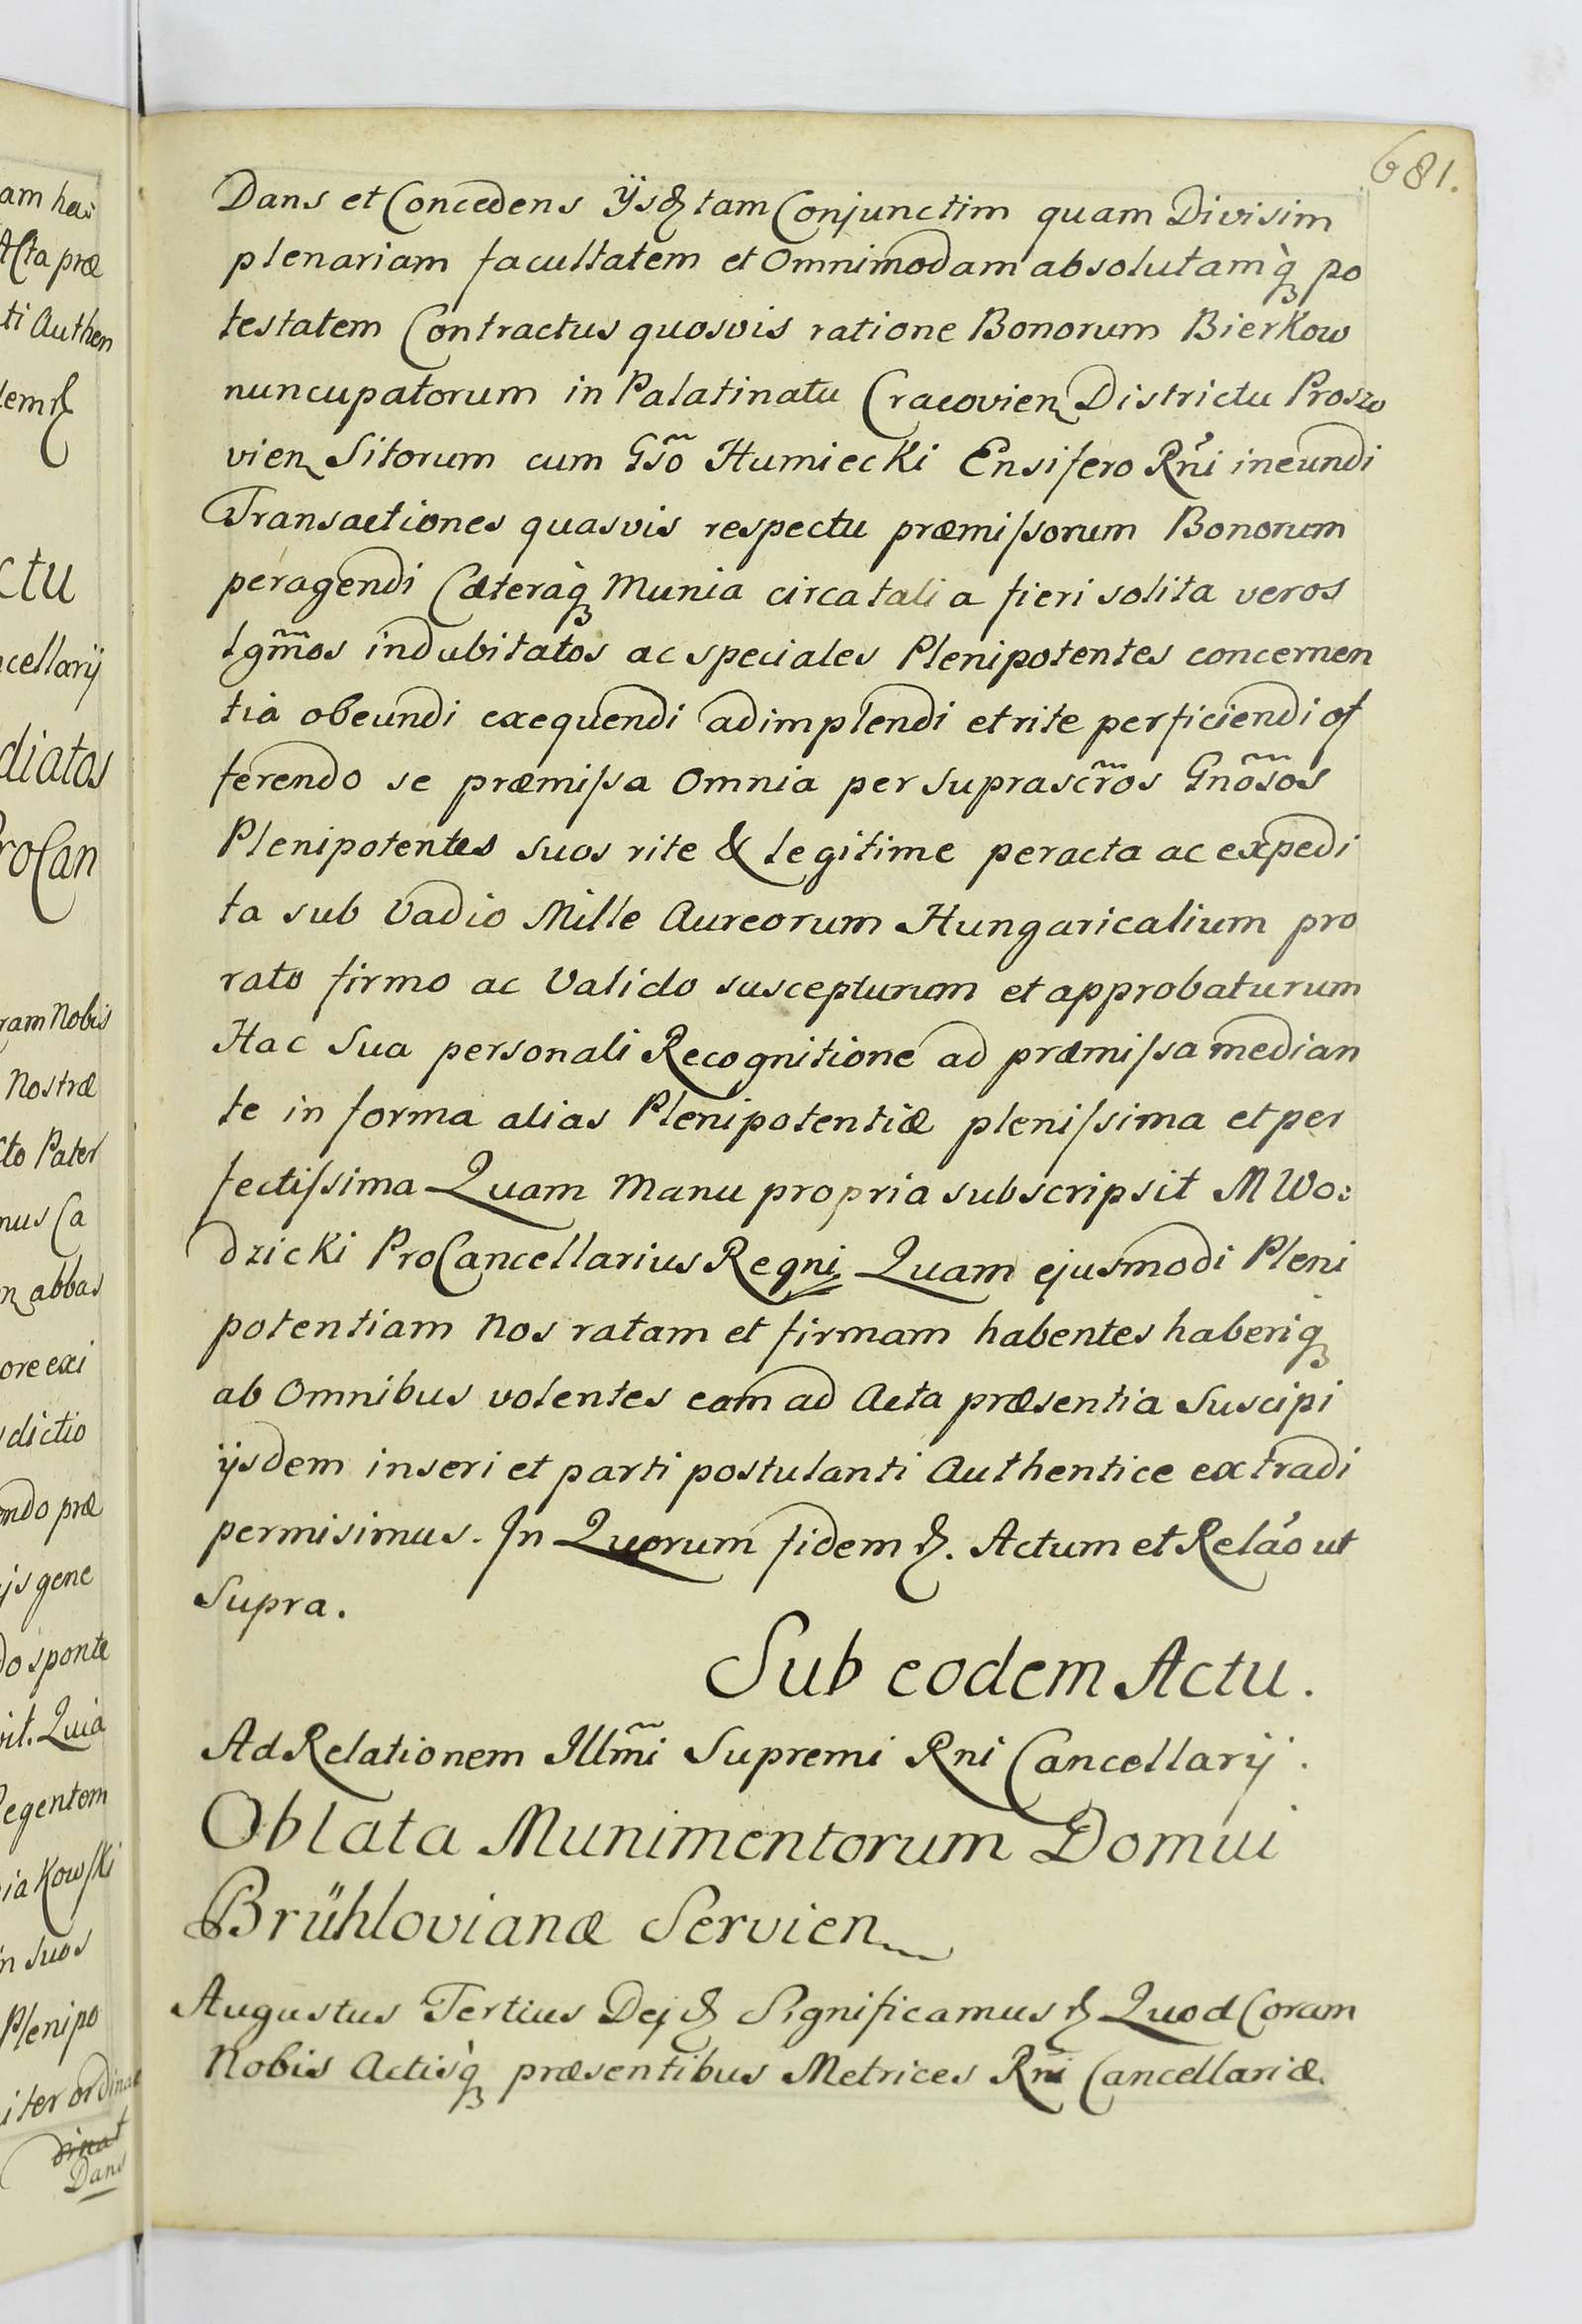 681.
Dans et Concedens ijs& tam Conjunctim quam Divisim
plenariam facultatem et Omnimodam absolutamq̀ po
testatem Contractus quosvis ratione Bonorum Bierkow
nuncupatorum in Palatinatu Cracovien Districtu Proszo
vien Sitorum cum Gsõ Humiecki Ensifero Rńi ineundi
Transactiones quasvis respectu præmissorum Bonorum
peragendi Cæteraq̀ Munia circa talia fieri solita veros
lgm̃os indubitatos ac speciales Plenipotentes concernen
tia obeundi exequendi adimplendi et rite perficiendi of
ferendo se præmissa Omnia per suprascr̃os Gnõsos
Plenipotentes suos rite & legitime peracta ac expedi
ta sub Vadio Mille Aureorum Hungaricalium pro
rato firmo ac Valido suscepturum et approbaturum
Hac Sua personali Recognitione ad præmissa median
te in forma alias Plenipotentiæ plenissima et per
fectissima Quam Manu propria subscripsit M Wo:
dzicki ProCancellarius Regni Quam ejusmodi Pleni
potentiam Nos ratam et firmam habentes haberiq
ab Omnibus volentes eam ad Acta præsentia Suscipi
ijsdem inseri et parti postulanti Authentice extradi
permisimus. In Quorum fidem &. Actum et Relaó ut
Supra.
Sub eodem Actu.
Ad Relationem Illm̃i Supremi Rni Cancellarij.
Oblata Munimentorum Domui
Brühlovianæ Servien
Augustus Tertius Dej & Significamus & Quod Coram
Nobis Actisq̀ præsentibus Metrices Rni Cancellariæ.